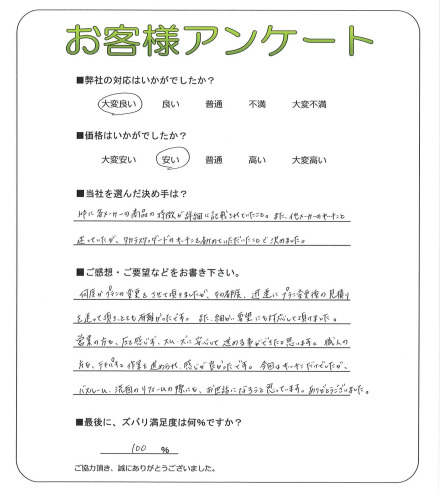 お客様アンケート
■弊社の対応はいかがでしたか?
大変良い 良い 普通 不満 大変不満
■価格はいかがでしたか?
大変安い 安い 普通 高い 大変高い
■当社を選んだ決め手は?
HPに各メーカーの商品の特徴が詳細に記載されていたこと。また、他メーカーのキッチンと
迷っていたが、タカラスタンダードのキッチンを勧めていただいたことで決めました。
■ご感想・ご要望などをお書き下さい。
何度かプランの変更をさせて頂きましたが、その都度、迅速にプラン変更後の見積り
を送って頂きとても有難かったです。また、細かい要望にも対応して頂けました。
営業の方も、圧を感じず、スムーズに安心して進める事ができたと思います。職人の
方も、テキパキと作業を進められ、感じが良かったです。今回はキッチンだけでしたが、
バスルーム、洗面のリフォームの際にも、お世話になろうと思っています。ありがとうございました。
■最後に、ズバリ満足度は何%ですか?
100 %
ご協力頂き、誠にありがとうございました。